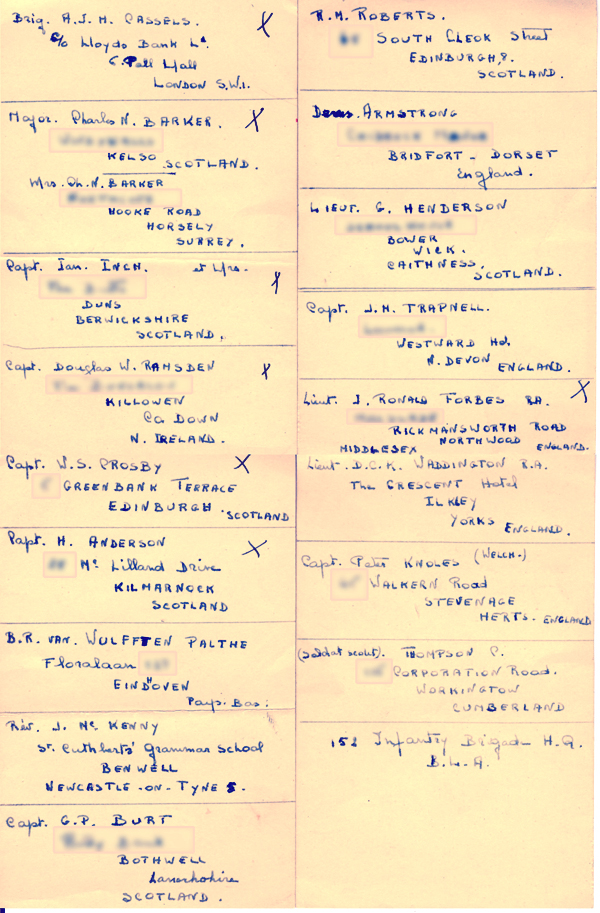 Brig. A.J.H. CASSELS.
c/o Lloyds Bank Ld.
6. Pall Mall
LONDON S.W.1.
Major. Charles N. BARKER.
KELSO SCOTLAND.
Mrs. Ch. N. BARKER
HOOKE ROAD
HORSELY
SURREY.
Capt. Ian. INCH. et Mrs.
DUNS
BERWICKSHIRE
SCOTLAND.
Capt. Douglas W. RAMSDEN
KILLOWEN
Co. DOWN
N. IRELAND.
Capt. W.S. CROSBY
GREENBANK TERRACE
EDINBURGH. SCOTLAND
Capt. H. ANDERSON
Mc Lilland Drive
KILMARNOCK
SCOTLAND
B.R. VAN. WULFFTEN PALTHE
Floralaan
EINDHOVEN
Pays. Bas.
Rév. J. Mc KENNY
St. Cuthberts' Grammar School
BENWELL
NEWCASTLE-ON-TYNE 5.
Capt. G.P. BURT
BOTHWELL
Lanarkshire
SCOTLAND.
R.M. ROBERTS.
SOUTH CLEOK Street
EDINBURGH, 8.
SCOTLAND.
ARMSTRONG
BRIDFORT - DORSET
England.
LIEUT. G. HENDERSON
BOWER
WICK.
CAITHNESS.
SCOTLAND.
Capt. J.H. TRAPNELL.
WESTWARD Ho.
N. DEVON ENGLAND.
Lieut. J. RONALD FORBES RA.
RICKMANSWORTH ROAD
MIDDLESEX NORTHWOOD ENGLAND.
Lieut. D.C.K. WADDINGTON R.A.
The CRESCENT Hotel
ILKLEY
YORKS ENGLAND.
Capt. Peter KNOLES (WELCH.)
WALKERN Road
STEVENAGE
HERTS. ENGLAND
(Soldat scout). THOMPSON P.
CORPORATION Road.
WORKINGTOW
CUMBERLAND
152 Infantry Brigade H.Q.
B.L.A.